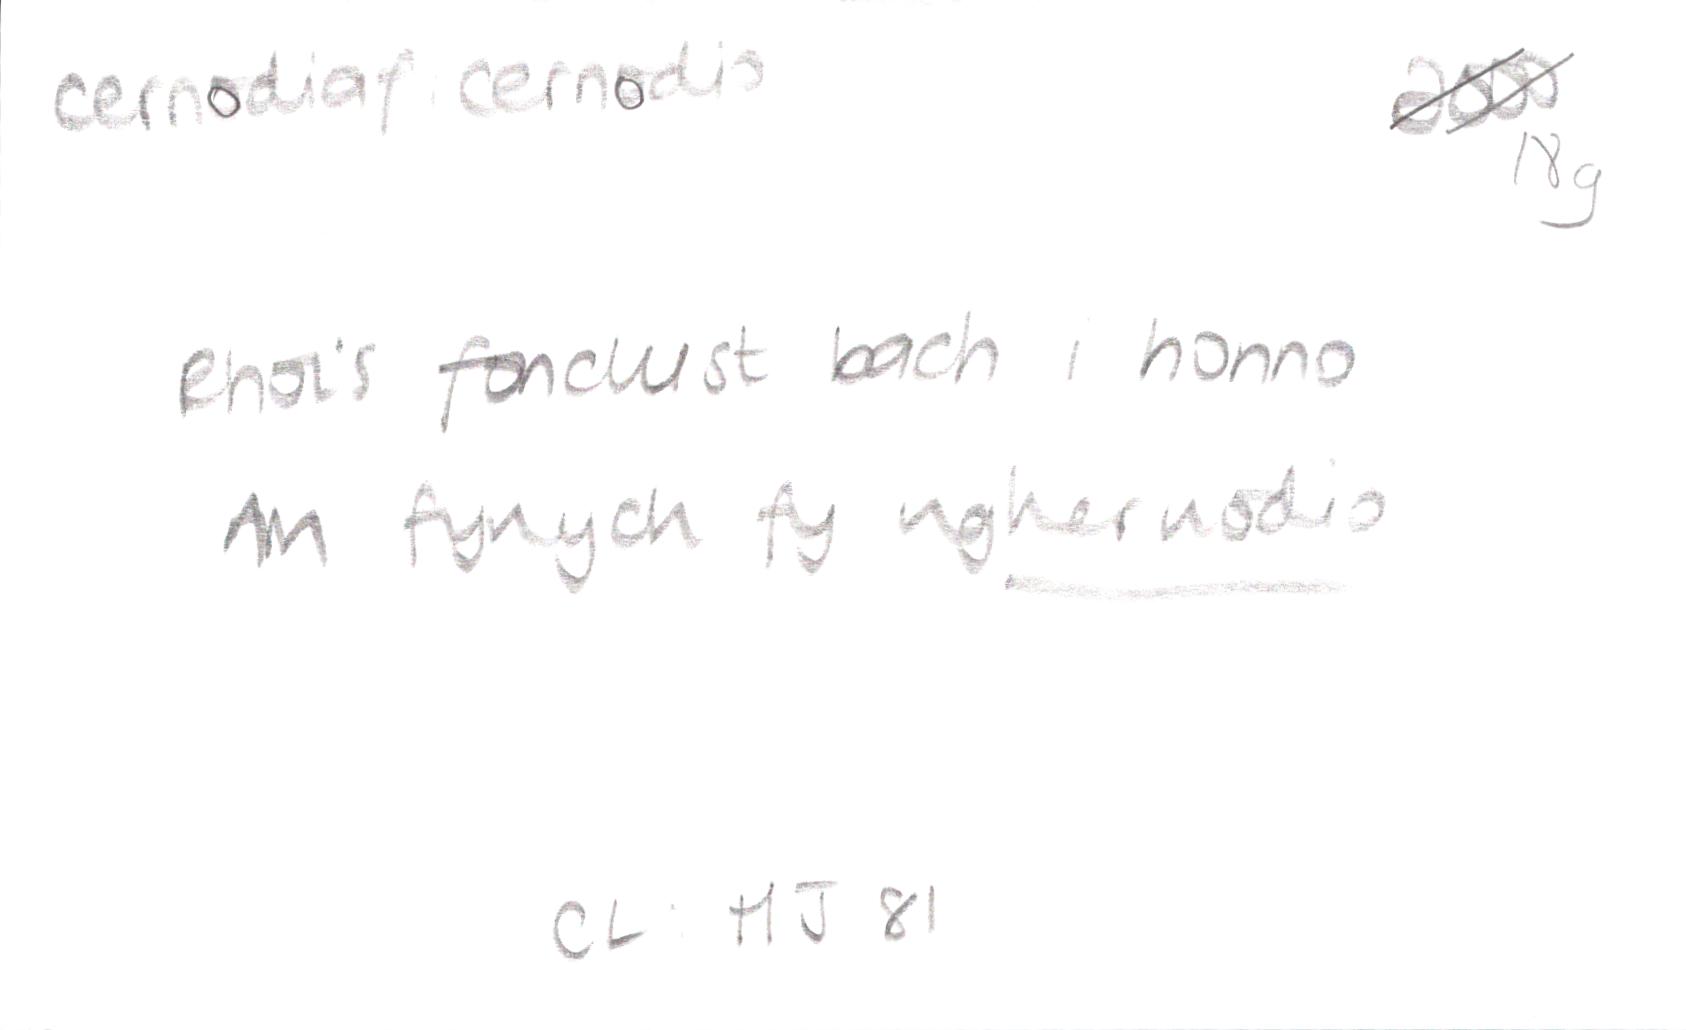 cernodiaf: cernodio
18g
Rhoi's fonclust bach i honno
Am fynych fy nghernodio
CL: HJ 81